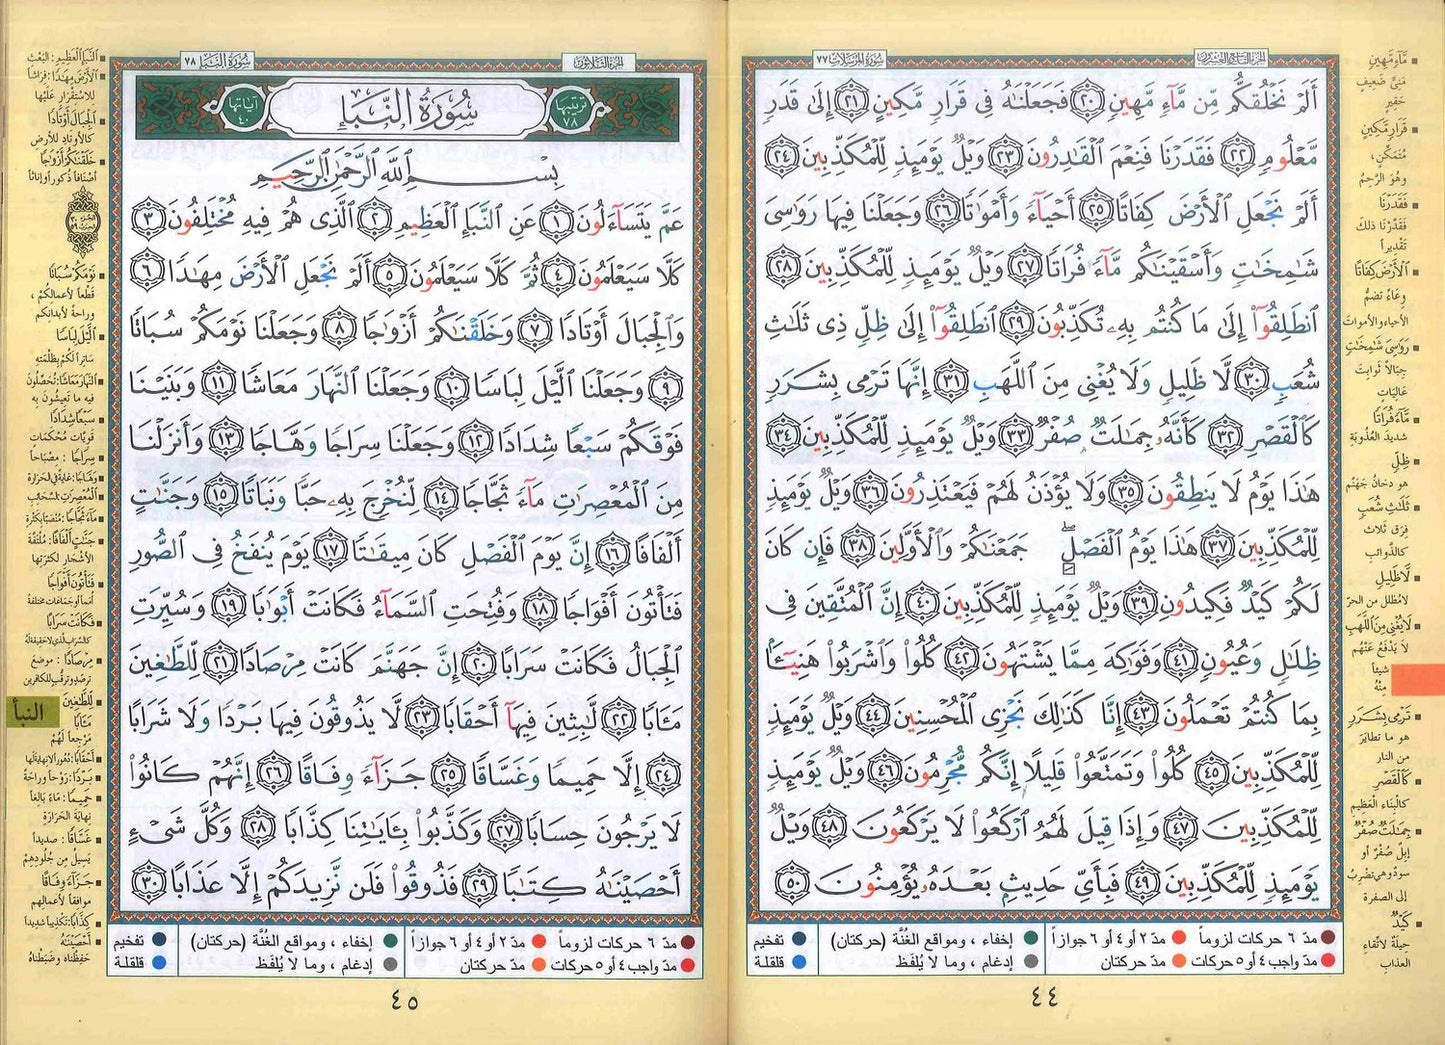 الجزء التاسع والعشرون
سورة المرسلات ٧٧
أَلَمْ نَخْلُقكُّم مِّن مَّآءٍ مَّهِينٍ ٢٠ فَجَعَلْنَٰهُ فِى قَرَارٍ مَّكِينٍ ٢١ إِلَىٰ قَدَرٍ
مَّعْلُومٍ ٢٢ فَقَدَرْنَا فَنِعْمَ ٱلْقَٰدِرُونَ ٢٣ وَيْلٌ يَوْمَئِذٍ لِّلْمُكَذِّبِينَ ٢٤
أَلَمْ نَجْعَلِ ٱلْأَرْضَ كِفَاتًا ٢٥ أَحْيَآءً وَأَمْوَٰتًا ٢٦ وَجَعَلْنَا فِيهَا رَوَٰسِىَ
شَٰمِخَٰتٍ وَأَسْقَيْنَٰكُم مَّآءً فُرَاتًا ٢٧ وَيْلٌ يَوْمَئِذٍ لِّلْمُكَذِّبِينَ ٢٨
ٱنطَلِقُوٓا۟ إِلَىٰ مَا كُنتُم بِهِۦ تُكَذِّبُونَ ٢٩ ٱنطَلِقُوٓا۟ إِلَىٰ ظِلٍّ ذِى ثَلَٰثِ
شُعَبٍ ٣٠ لَّا ظَلِيلٍ وَلَا يُغْنِى مِنَ ٱللَّهَبِ ٣١ إِنَّهَا تَرْمِى بِشَرَرٍ
كَٱلْقَصْرِ ٣٢ كَأَنَّهُۥ جِمَٰلَتٌ صُفْرٌ ٣٣ وَيْلٌ يَوْمَئِذٍ لِّلْمُكَذِّبِينَ ٣٤
هَٰذَا يَوْمُ لَا يَنطِقُونَ ٣٥ وَلَا يُؤْذَنُ لَهُمْ فَيَعْتَذِرُونَ ٣٦ وَيْلٌ يَوْمَئِذٍ
لِّلْمُكَذِّبِينَ ٣٧ هَٰذَا يَوْمُ ٱلْفَصْلِ ۖ جَمَعْنَٰكُمْ وَٱلْأَوَّلِينَ ٣٨ فَإِن كَانَ
لَكُمْ كَيْدٌ فَكِيدُونِ ٣٩ وَيْلٌ يَوْمَئِذٍ لِّلْمُكَذِّبِينَ ٤٠ إِنَّ ٱلْمُتَّقِينَ فِى
ظِلَٰلٍ وَعُيُونٍ ٤١ وَفَوَٰكِهَ مِمَّا يَشْتَهُونَ ٤٢ كُلُوا۟ وَٱشْرَبُوا۟ هَنِيٓـًٔۢا
بِمَا كُنتُمْ تَعْمَلُونَ ٤٣ إِنَّا كَذَٰلِكَ نَجْزِى ٱلْمُحْسِنِينَ ٤٤ وَيْلٌ يَوْمَئِذٍ
لِّلْمُكَذِّبِينَ ٤٥ كُلُوا۟ وَتَمَتَّعُوا۟ قَلِيلًا إِنَّكُم مُّجْرِمُونَ ٤٦ وَيْلٌ يَوْمَئِذٍ
لِّلْمُكَذِّبِينَ ٤٧ وَإِذَا قِيلَ لَهُمُ ٱرْكَعُوا۟ لَا يَرْكَعُونَ ٤٨ وَيْلٌ
يَوْمَئِذٍ لِّلْمُكَذِّبِينَ ٤٩ فَبِأَىِّ حَدِيثٍۭ بَعْدَهُۥ يُؤْمِنُونَ ٥٠
مَّآءٍ مَّهِينٍ
منيّ ضعيف
حقير
قَرَارٍ مَّكِينٍ
متمكّن،
وهو الرّحم
فَقَدَرْنَا
فقدّرنا ذلك
تقديراً
ٱلْأَرْضَ كِفَاتًا
وعاءً تضمّ
الأحياء والأموات
رَوَٰسِىَ شَٰمِخَٰتٍ
جبالاً ثوابت
عاليات
مَّآءً فُرَاتًا
شديد العذوبة
ظِلٍّ
هو دخان جهنّم
ثَلَٰثِ شُعَبٍ
فرق ثلاث
كالذّوائب
لَّا ظَلِيلٍ
لا مُظلل من الحرّ
لَا يُغْنِى مِنَ ٱللَّهَبِ
لا يدفع عنهم
شيئاً
منه
تَرْمِى بِشَرَرٍ
هو ما تطاير
من النار
كَٱلْقَصْرِ
كالبناء العظيم
جِمَٰلَتٌ صُفْرٌ
إبل صفر أو
سود وهي تضرب
إلى الصفرة
كَيْدٌ
حيلة لاتّقاء
العذاب
مدّ ٦ حركات لزوماً مدّ ٢ أو ٤ أو ٦ جوازاً إخفاء ، ومواقع الغُنَّة (حركتان) تفخيم
مدّ واجب ٤ أو ٥ حركات مدّ حركتان إدغام ، وما لا يُلفَظ قلقلة
٤٤
الجزء الثلاثون
سورة النبإ ٧٨
ترتيبها ٧٨
سُورَةُ النَّبَإِ
آياتها ٤٠
بِسْمِ ٱللَّهِ ٱلرَّحْمَٰنِ ٱلرَّحِيمِ
عَمَّ يَتَسَآءَلُونَ ١ عَنِ ٱلنَّبَإِ ٱلْعَظِيمِ ٢ ٱلَّذِى هُمْ فِيهِ مُخْتَلِفُونَ ٣
كَلَّا سَيَعْلَمُونَ ٤ ثُمَّ كَلَّا سَيَعْلَمُونَ ٥ أَلَمْ نَجْعَلِ ٱلْأَرْضَ مِهَٰدًا ٦
وَٱلْجِبَالَ أَوْتَادًا ٧ وَخَلَقْنَٰكُمْ أَزْوَٰجًا ٨ وَجَعَلْنَا نَوْمَكُمْ سُبَاتًا
٩ وَجَعَلْنَا ٱلَّيْلَ لِبَاسًا ١٠ وَجَعَلْنَا ٱلنَّهَارَ مَعَاشًا ١١ وَبَنَيْنَا
فَوْقَكُمْ سَبْعًا شِدَادًا ١٢ وَجَعَلْنَا سِرَاجًا وَهَّاجًا ١٣ وَأَنزَلْنَا
مِنَ ٱلْمُعْصِرَٰتِ مَآءً ثَجَّاجًا ١٤ لِّنُخْرِجَ بِهِۦ حَبًّا وَنَبَاتًا ١٥ وَجَنَّٰتٍ
أَلْفَافًا ١٦ إِنَّ يَوْمَ ٱلْفَصْلِ كَانَ مِيقَٰتًا ١٧ يَوْمَ يُنفَخُ فِى ٱلصُّورِ
فَتَأْتُونَ أَفْوَاجًا ١٨ وَفُتِحَتِ ٱلسَّمَآءُ فَكَانَتْ أَبْوَٰبًا ١٩ وَسُيِّرَتِ
ٱلْجِبَالُ فَكَانَتْ سَرَابًا ٢٠ إِنَّ جَهَنَّمَ كَانَتْ مِرْصَادًا ٢١ لِّلطَّٰغِينَ
مَـَٔابًا ٢٢ لَّٰبِثِينَ فِيهَآ أَحْقَابًا ٢٣ لَّا يَذُوقُونَ فِيهَا بَرْدًا وَلَا شَرَابًا
٢٤ إِلَّا حَمِيمًا وَغَسَّاقًا ٢٥ جَزَآءً وِفَاقًا ٢٦ إِنَّهُمْ كَانُوا۟
لَا يَرْجُونَ حِسَابًا ٢٧ وَكَذَّبُوا۟ بِـَٔايَٰتِنَا كِذَّابًا ٢٨ وَكُلَّ شَىْءٍ
أَحْصَيْنَٰهُ كِتَٰبًا ٢٩ فَذُوقُوا۟ فَلَن نَّزِيدَكُمْ إِلَّا عَذَابًا ٣٠
ٱلنَّبَإِ ٱلْعَظِيمِ : البعث
ٱلْأَرْضَ مِهَٰدًا : فراشاً
للاستقرار عليها
ٱلْجِبَالَ أَوْتَادًا
كالأوتاد للأرض
خَلَقْنَٰكُمْ أَزْوَٰجًا
أصنافاً ذكوراً وإناثاً
نَوْمَكُمْ سُبَاتًا
قطعاً لأعمالكم ،
وراحة لأبدانكم
ٱلَّيْلَ لِبَاسًا
ساتراً لكم بظلمته
ٱلنَّهَارَ مَعَاشًا : تحصّلون
فيه ما تعيشون به
سَبْعًا شِدَادًا
قويّات محكمات
سِرَاجًا : مصباحاً
وَهَّاجًا : غاية في الحرارة
ٱلْمُعْصِرَٰتِ : السّحائب
مَآءً ثَجَّاجًا : منصبّاً بكثرة
جَنَّٰتٍ أَلْفَافًا : ملتفّة
الأشجار لكثرتها
فَتَأْتُونَ أَفْوَاجًا
أمماً أو جماعات مختلفة
فَكَانَتْ سَرَابًا
كالسّراب الذي لا حقيقة له
مِرْصَادًا : موضع
ترصّد وترقّب للكافرين
لِّلطَّٰغِينَ
مَـَٔابًا
مرجعاً لهم
النبأ
أَحْقَابًا : دهوراً لا نهاية لها
بَرْدًا : روحاً وراحة
حَمِيمًا : ماءً بالغاً
نهاية الحرارة
غَسَّاقًا : صديداً
يسيل من جلودهم
جَزَآءً وِفَاقًا
موافقاً لأعمالهم
كِذَّابًا : تكذيباً شديداً
أَحْصَيْنَٰهُ
حفظناه وضبطناه
مدّ ٦ حركات لزوماً مدّ ٢ أو ٤ أو ٦ جوازاً إخفاء ، ومواقع الغُنَّة (حركتان) تفخيم
مدّ واجب ٤ أو ٥ حركات مدّ حركتان إدغام ، وما لا يُلفَظ قلقلة
٤٥